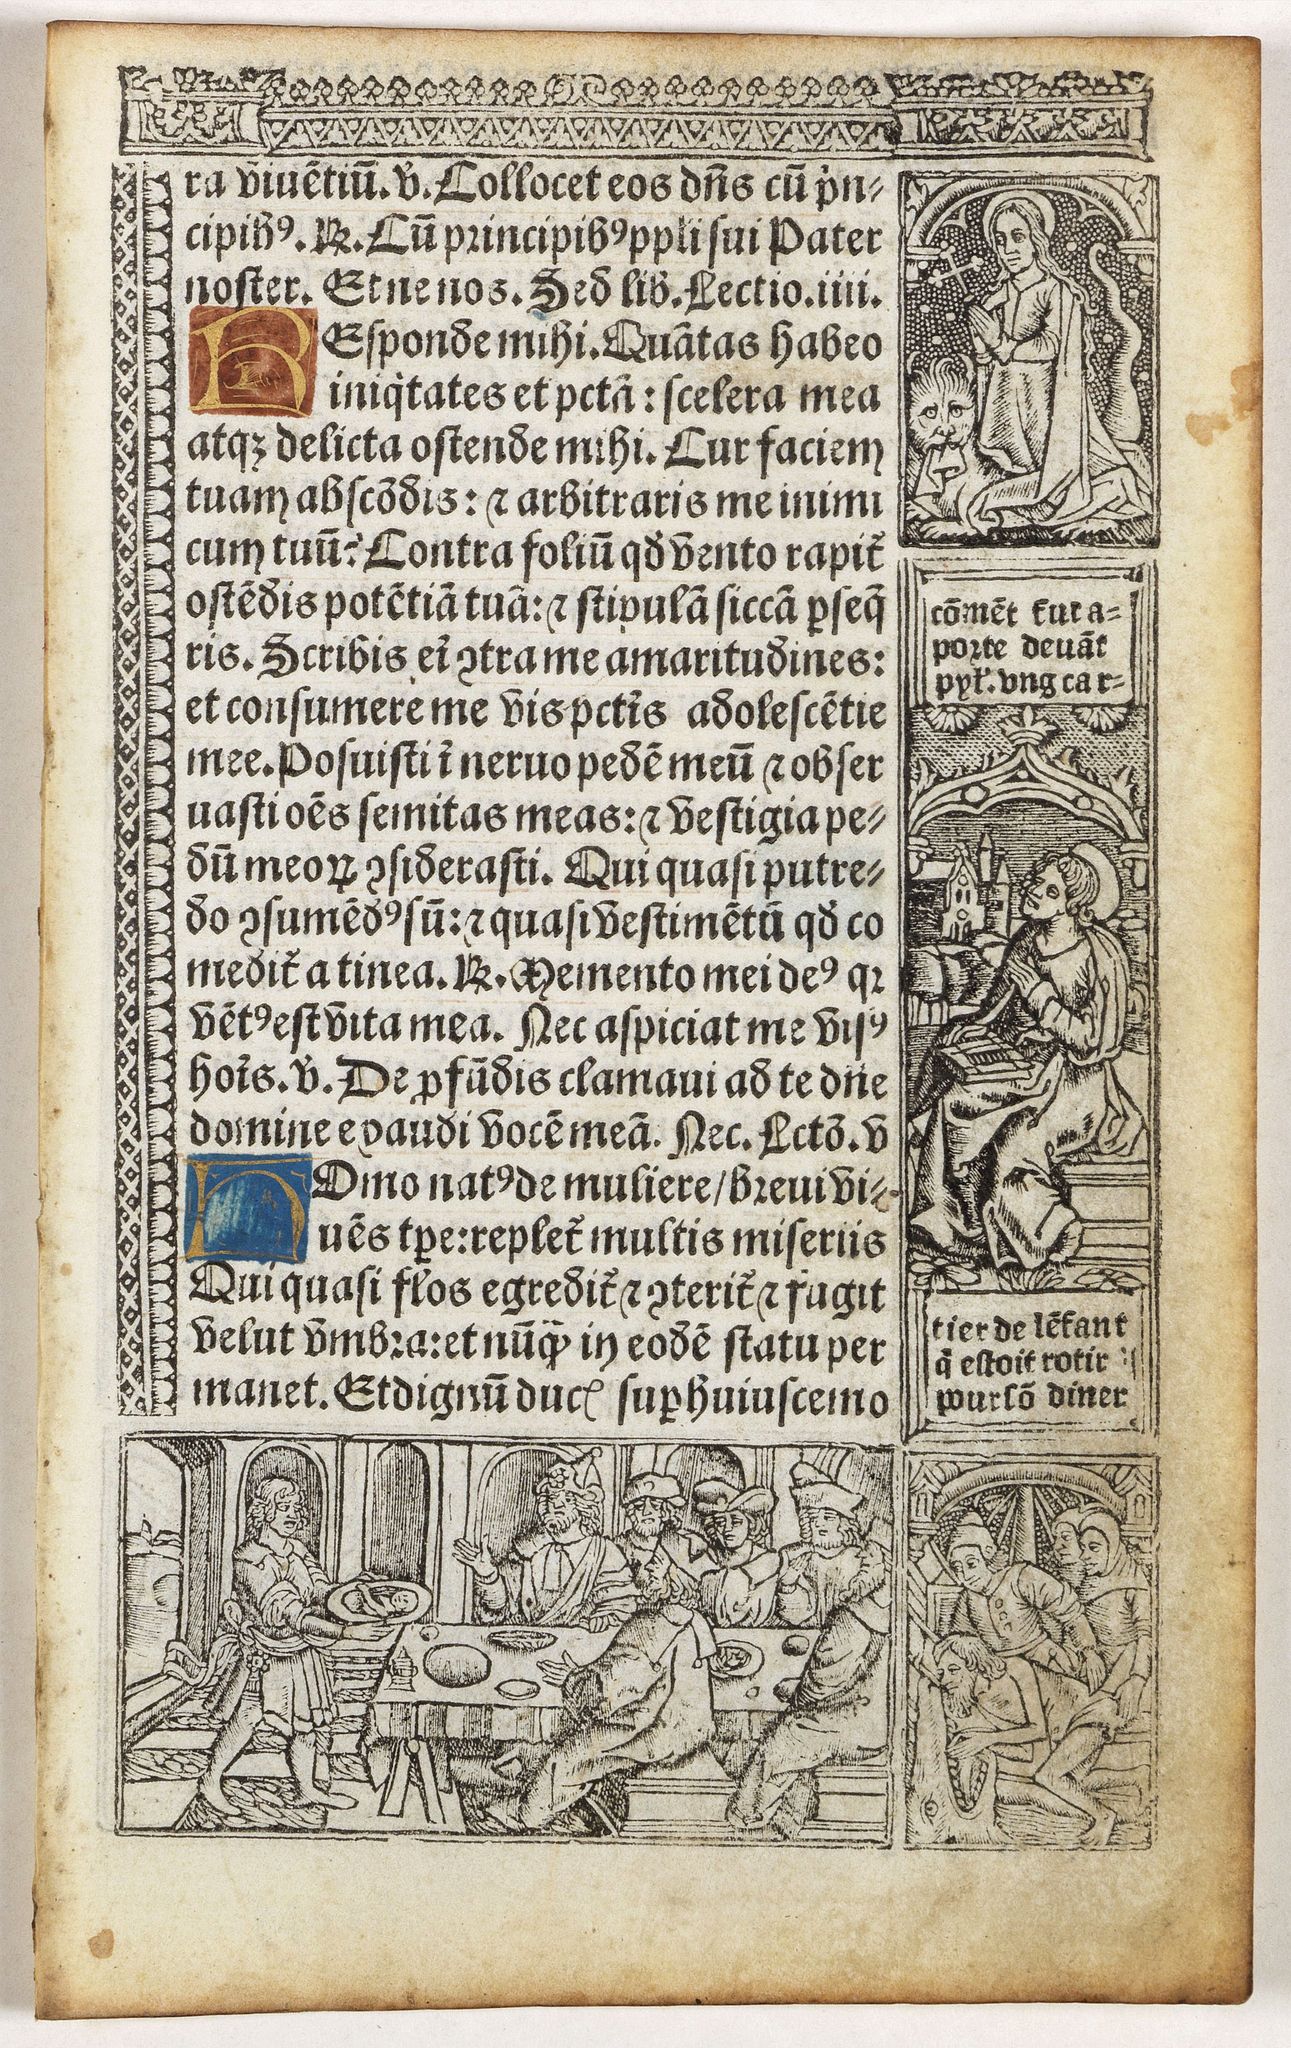 ra viuētiū. ṽ. Collocet eos dn̄s cū pⁱn-
cipibꝰ. ℟. Cū principibꝰ ppl̄i sui Pater
noster. Et ne nos. Sed lib. Lectio. iiii.
REsponde mihi. Quātas habeo
iniq̄tates et pctā: scelera mea
atqꝫ delicta ostende mihi. Cur faciem
tuam abscōdis: ⁊ arbitraris me inimi
cum tuū? Contra foliū qd̄ vento rapit᷑
ostēdis potētiā tuā: ⁊ stipulā siccā ꝑseq̄
ris. Scribis ei᷑ ꝯtra me amaritudines:
et consumere me vis pctīs adolescētie
mee. Posuisti ī neruo pedē meū ⁊ obser
uasti oēs semitas meas: ⁊ vestigia pe-
dū meoꝝ ꝯsiderasti. Qui quasi putre-
do ꝯsumēdꝰ sū: ⁊ quasi vestimētū qd̄ co
medit᷑ a tinea. ℟. Memento mei deꝰ qꝛ
vētꝰ est vita mea. Nec aspiciat me visꝰ
hoīs. ṽ. De ꝓfūdis clamaui ad te dn̄e
domine exaudi vocē meā. Nec. Lctō. v
HOmo natꝰ de muliere/ breui vi-
uēs tꝑe: replet᷑ multis miseriis
Qui quasi flos egredit᷑ ⁊ ꝯterit᷑ ⁊ fugit
velut vmbra: et nūqͣꝫ in eodē statu per
manet. Et dignū duc̄ suꝑ huiuscemo
cōmēt fut a-
porte deuāt
pyl᷑. vng car-
tier de lēfant
q̄ estoit rotir
pour sō diner